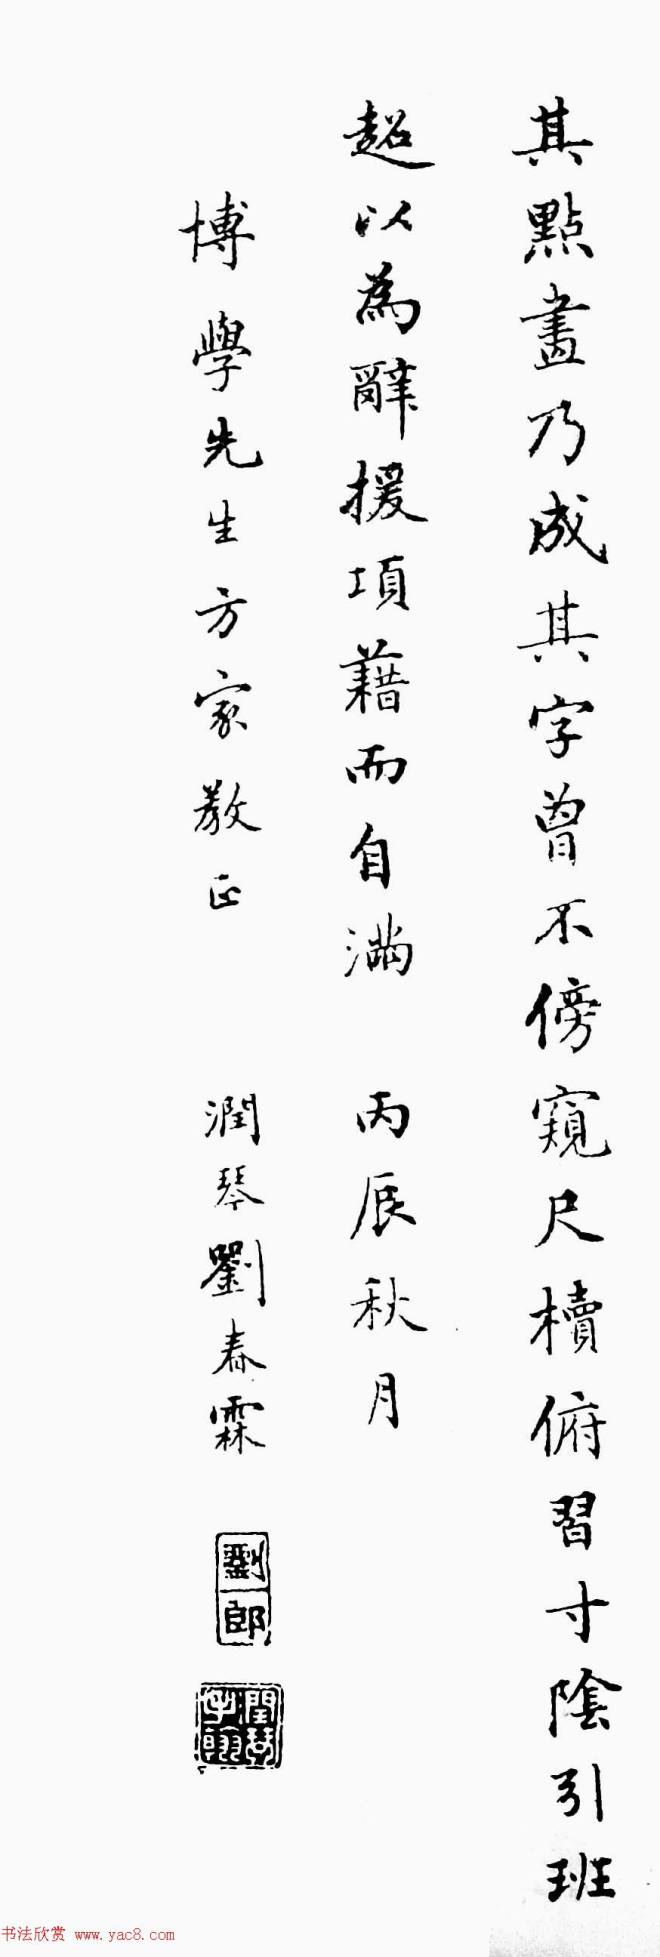 其點畫乃成其字曾不傍窺尺櫝俯習寸陰引班
超以為辭援項藉而自滿 丙辰秋月
博學先生方家教正 潤琴劉春霖
劉郎
潤琴字翰
书法欣赏 www.yac8.com